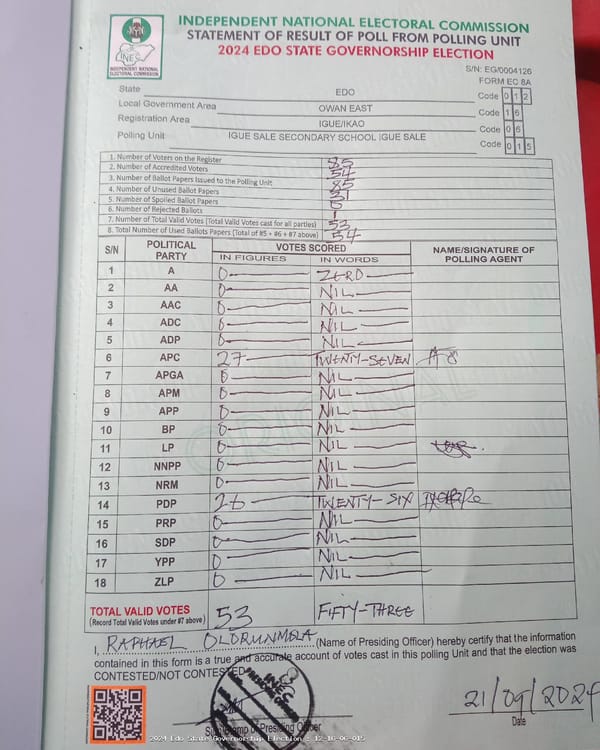 INDEPENDENT NATIONAL ELECTORAL COMMISSION
STATEMENT OF RESULT OF POLL FROM POLLING UNIT
2024 EDO STATE GOVERNORSHIP ELECTION
INEC
INDEPENDENT NATIONAL
ELECTORAL COMMISSION
S/N: EG/0004126
FORM EC 8A
State EDO Code 0 1 2
Local Government Area OWAN EAST Code 1 6
Registration Area IGUE/IKAO Code 0 6
Polling Unit IGUE SALE SECONDARY SCHOOL IGUE SALE Code 0 1 5
1. Number of Voters on the Register 85
2. Number of Accredited Voters 54
3. Number of Ballot Papers Issued to the Polling Unit 85
4. Number of Unused Ballot Papers 31
5. Number of Spoiled Ballot Papers 0
6. Number of Rejected Ballots 1
7. Number of Total Valid Votes (Total Valid Votes cast for all parties) 53
8. Total Number of Used Ballots Papers (Total of #5 + #6 + #7 above) 54
S/N POLITICAL PARTY VOTES SCORED NAME/SIGNATURE OF POLLING AGENT
IN FIGURES IN WORDS
1 A 0 ZERO
2 AA 0 NIL
3 AAC 0 NIL
4 ADC 0 NIL
5 ADP 0 NIL
6 APC 27 TWENTY-SEVEN
7 APGA 0 NIL
8 APM 0 NIL
9 APP 0 NIL
10 BP 0 NIL
11 LP 0 NIL
12 NNPP 0 NIL
13 NRM 0 NIL
14 PDP 26 TWENTY-SIX
15 PRP 0 NIL
16 SDP 0 NIL
17 YPP 0 NIL
18 ZLP 0 NIL
ORIGINAL
TOTAL VALID VOTES 53 FIFTY-THREE
(Record Total Valid Votes under #7 above)
I, RAPHAEL OLORUNMOLA (Name of Presiding Officer) hereby certify that the information
contained in this form is a true and accurate account of votes cast in this polling Unit and that the election was
CONTESTED/NOT CONTESTED
INEC
Presiding Officer
21/09/2024
Date
2024 Edo State Governorship Election - 12-16-06-015